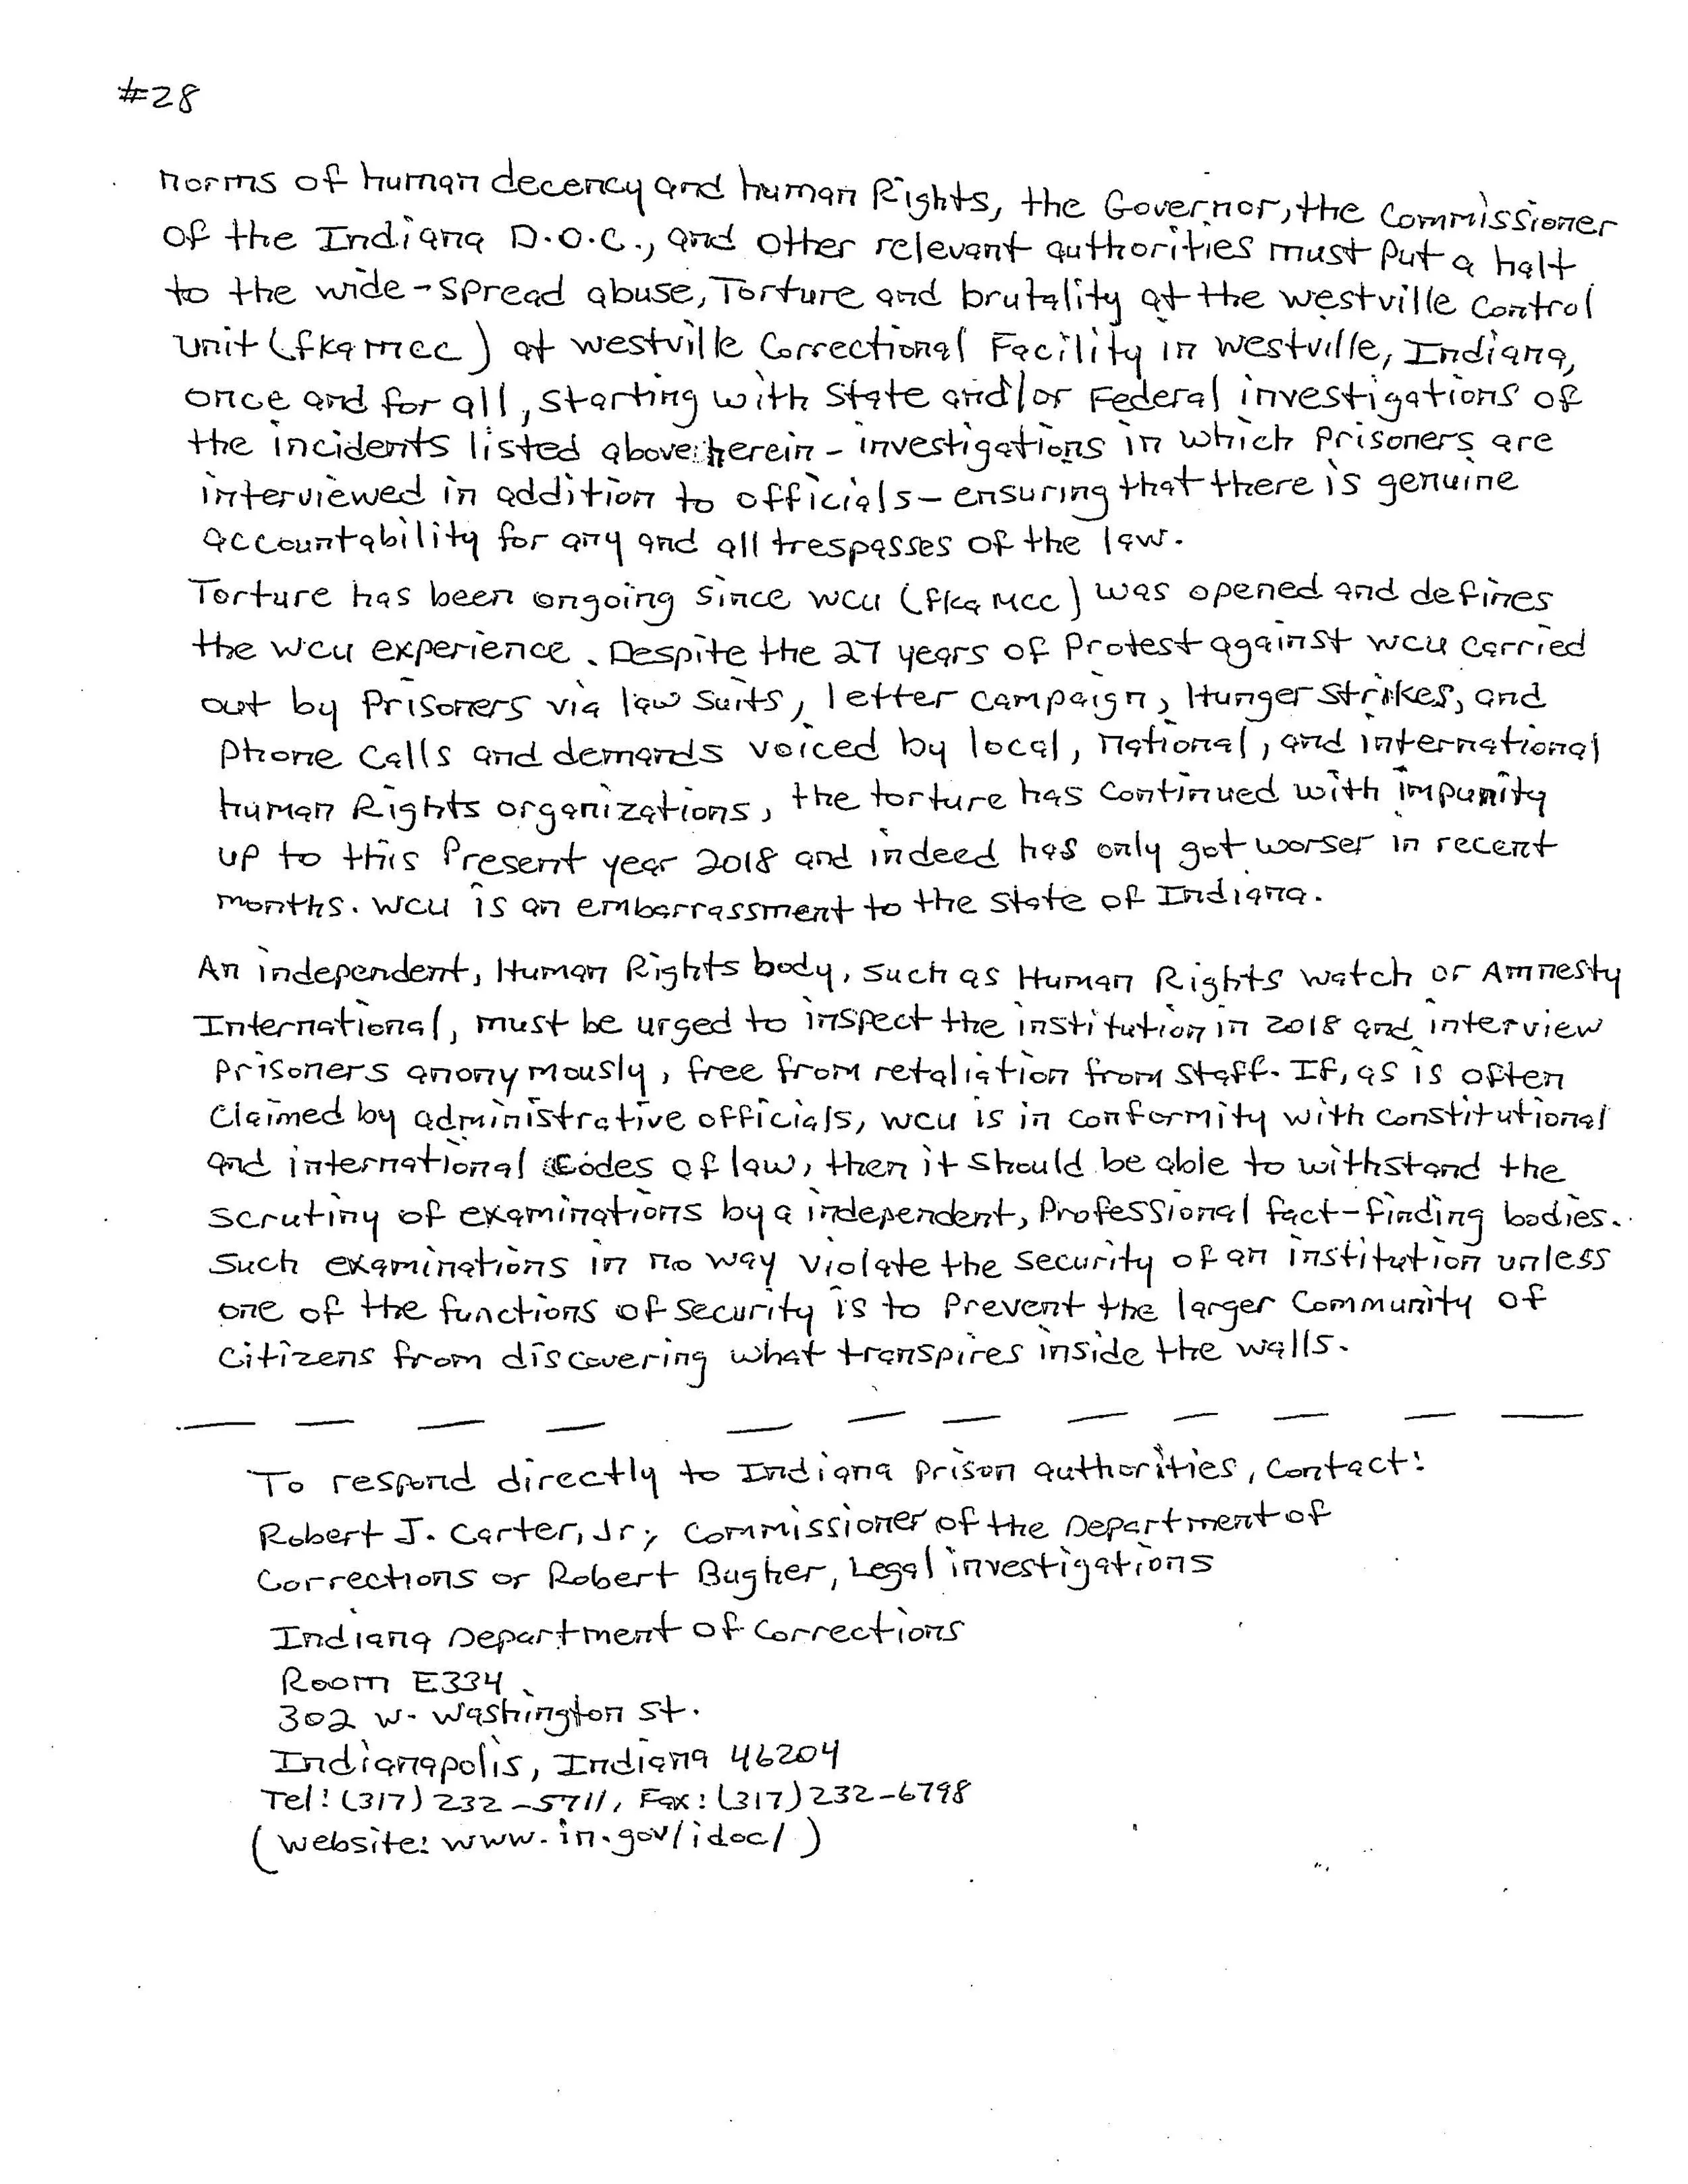 #28
norms of human decency and human Rights, the Governor, the Commissioner
of the Indiana D.O.C., and other relevant authorities must put a halt
to the wide-spread abuse, Torture and brutality at the westville Control
unit (fka mcc) at westville Correctional Facility in westville, Indiana,
once and for all, starting with State and/or Federal investigations of
the incidents listed above herein - investigations in which prisoners are
interviewed in addition to officials - ensuring that there is genuine
accountability for any and all trespasses of the law.
Torture has been ongoing since wcu (fka MCC) was opened and defines
the wcu experience. Despite the 27 years of Protest against wcu carried
out by Prisoners via law suits, letter campaign, Hunger Strikes, and
Phone Calls and demands voiced by local, national, and international
human Rights organizations, the torture has continued with impunity
up to this Present year 2018 and indeed has only got worser in recent
months. wcu is an embarrassment to the state of Indiana.
An independent, Human Rights body, such as Human Rights watch or Amnesty
International, must be urged to inspect the institution in 2018 and interview
Prisoners anonymously, free from retaliation from staff. If, as is often
Claimed by administrative officials, wcu is in conformity with constitutional
and international codes of law, then it should be able to withstand the
scrutiny of examinations by a independent, Professional fact-finding bodies.
Such examinations in no way violate the security of an institution unless
one of the functions of security is to Prevent the larger Community of
Citizens from discovering what transpires inside the walls.
To respond directly to Indiana prison authorities, Contact:
Robert J. Carter, Jr, Commissioner of the Department of
Corrections or Robert Bugher, Legal investigations
Indiana Department of Corrections
Room E334
302 W. Washington St.
Indianapolis, Indiana 46204
Tel: (317) 232-5711, Fax: (317) 232-6798
(website: www.in.gov/idoc/)